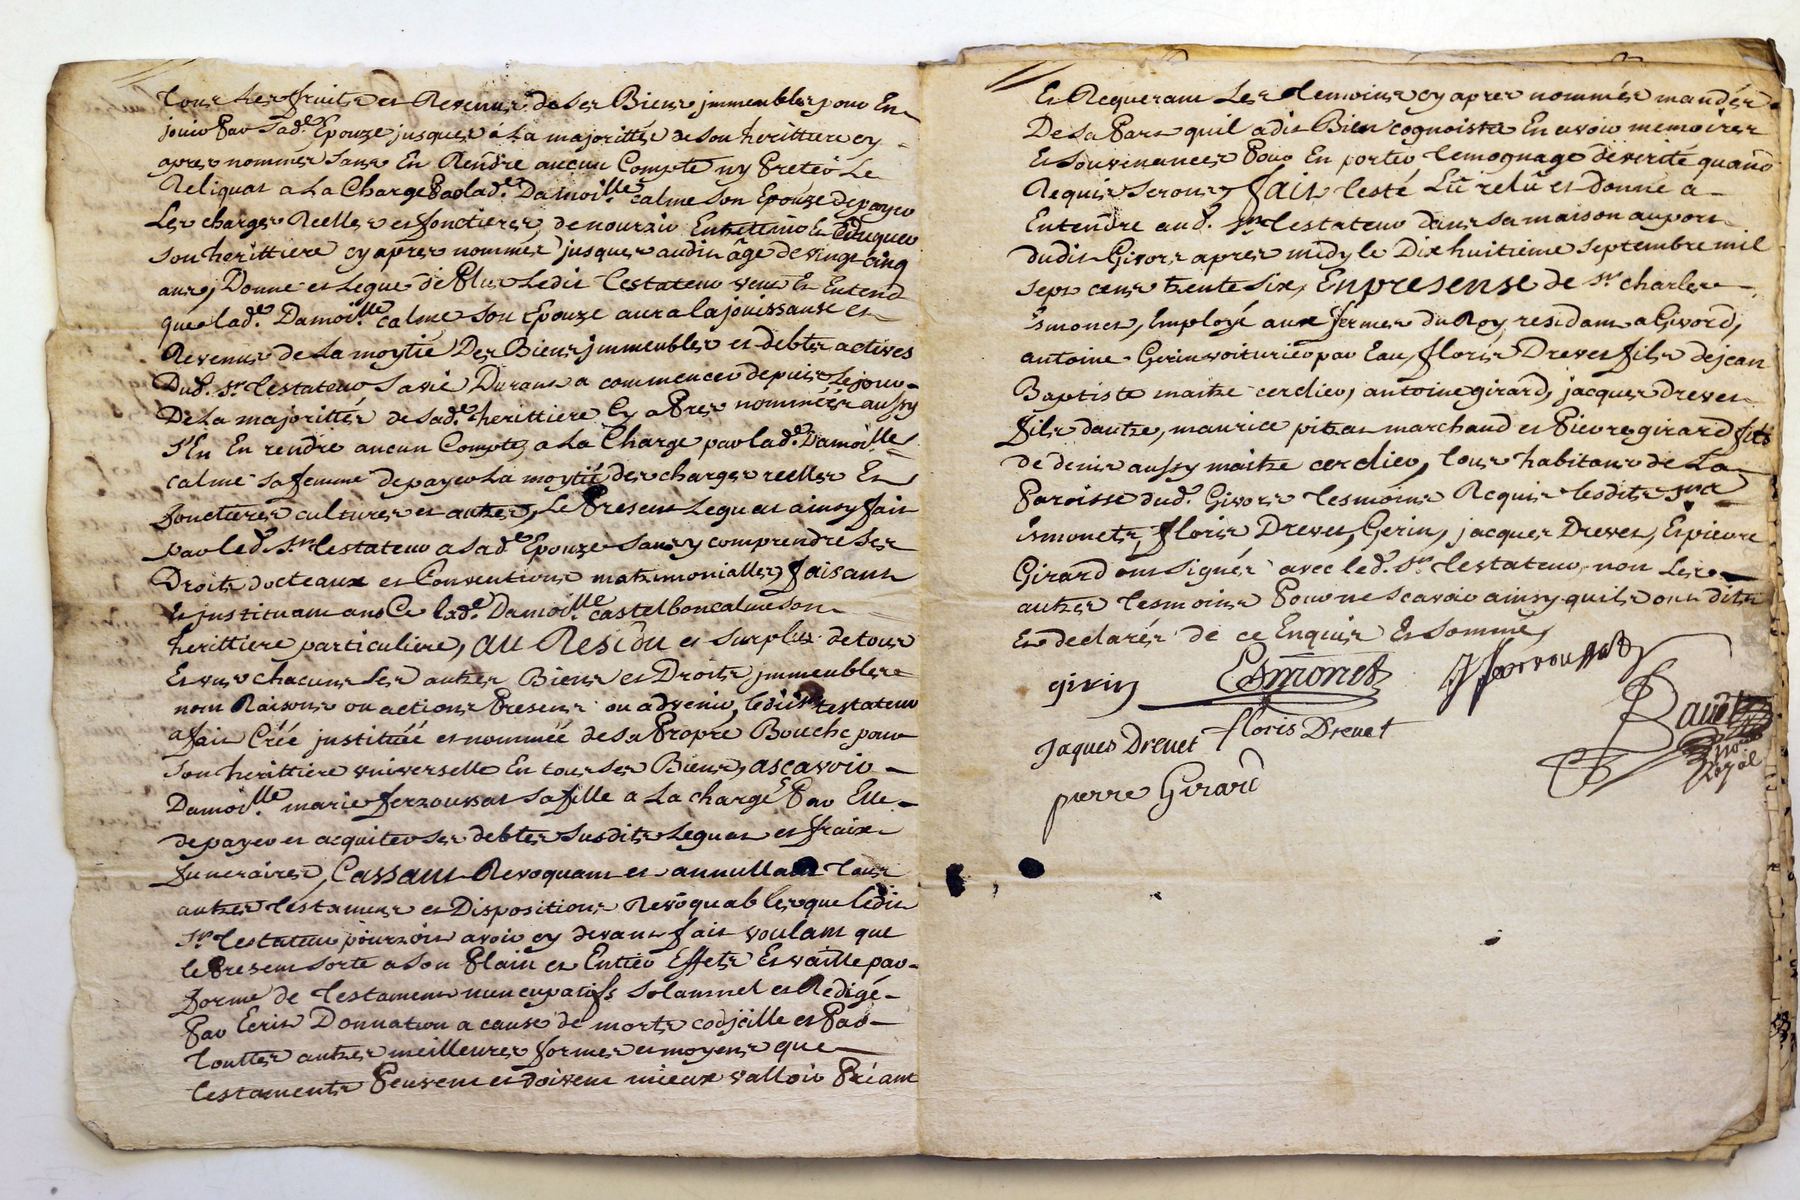 Tous les fruits et Revenus de ses Biens jmmeubles pour En
jouir Par sade. Epouze jusques à La majorittée de son herittiere cy
apres nommée sans En Rendre aucun Compte ny Preter Le
Reliquat a La Charge Par lade. Damoille. calme son Epouze de payer
Les charges Reelles et fonctieres, de nourrir Entretenir Et Eduquer
son herittiere cy apres nommée jusques audit âge de vingt cinq
ans, Donne et Legue de Plus Ledit Testateur veut Et Entend
que lade. Damoille. calme son Epouze aura la jouissanse et
Revenus de La moytié Des Biens jmmeubles et debtes actives
Dud. Sr. Testateur, sa vie Durant a commencer depuis Le jour
De La majorittée de sade. herittiere Cy aPres nommées aussy
s'En En rendre aucun Compte, a La Charge par lade. Damoille.
calme sa femme de payer La moytié des charges reelles Et
fonctieres cultures et autres, Le Present Leguat ainsy fait
par led. Sr. Testateur a sade. Epouze sans y comprendre ses
Droits docteaux et Conventions matrimonialles, faisant
Et justituant ans Ce lade. Damoille. castelbon calme son
herittiere particuliere, au Residu et surplus de tous
Et vns chacuns ses autres Biens et Droits jmmeubles
nom Raisons ou actions Presens ou advenir, ledit Sr. testateur
a fait Créé justituée et nommée de sa Propre Bouche pour
son herittiere vniverselle En tous ses Biens, ascavoir
Damoille. marie ferroussat sa fille a La charge Par Elle
de payer et acquiter ses debtes susdits Leguat et fraix
funeraires, Cassant Revoquant et annullant Tous
autres Testamens et Dispositions Revoquables que ledit
Sr. Testateur pourroit avoir cy devant fait voulant que
le Present sorte a son Plain et Entier Effets Et vaille par
forme de Testament nuncupatifs solannel et Redigé
Par Ecrit Donnation a cause de morts codjcille et Par
Touttes autres meilleures formes et moyens que
Testaments Peuvent et doivent mieux valloir Priant
Et Requerant Les Temoins cy apres nommés mandés
De sa Part quil a dit Bien cognoistre En avoir memoires
Et souvenances Pour En porter Temognage de verité quand
Requis seront, fait Testé Lû relû et donné a
Entendre aud. Sr. Testateur dans sa maison au port
dudit Givors apres midy le Dix huitieme septembre mil
sept cens trente six, En presense de Sr. charles
Esmonet, Employé aux fermes du Roy residant a Givord,
antoine Gerin voiturier par Eau, floris Drevet fils de jean
Baptiste maitre cerclier, antoine girard, jacques drevet
fils dautre, maurice pitrat marchand et Pierre girard fils
de denis aussy maitre cerclier, Tous habitans de La
Paroisse dud. Givors Tesmoins Requis lesdits Srs
Esmonets, floris Drevet, Gerin, jacques Drevet, Et pierre
Girard ont signés avec led. Sr. Testateur, non Les
autres Tesmoins Pour ne scavoir ainsy quils ont dits
Et declarés de ce Enquis Et sommé,
girin Esmonet fferroussat
Jaques Drevet floris Drevet
pierre Girard